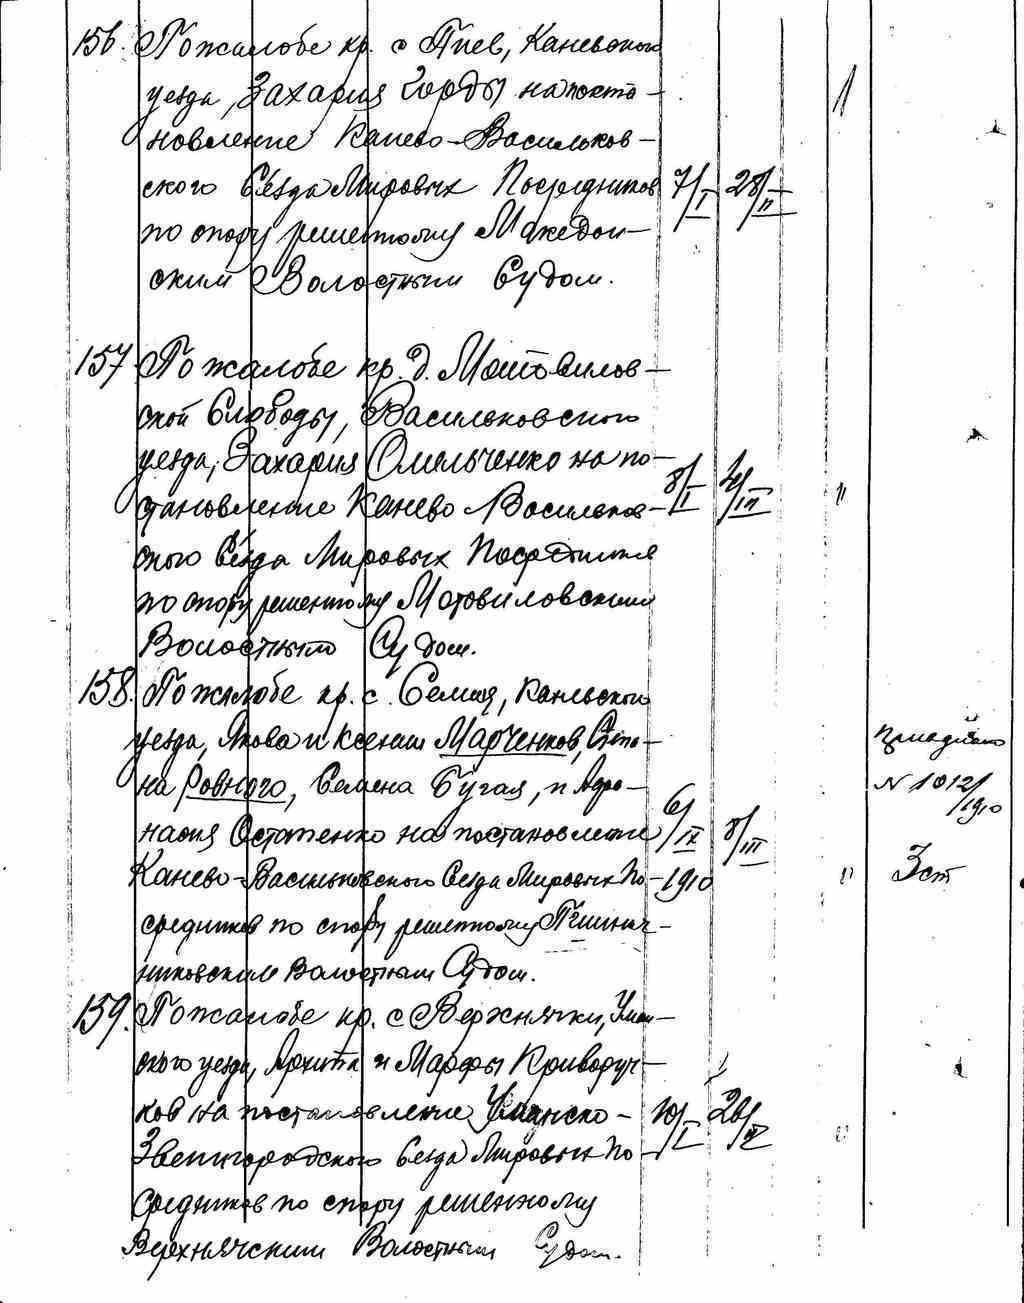 156. По жалобе кр. с Пиев, Каневского
уезда, Захария Горды на поста-
новление Канево-Васильков-
ского Съезда Мировых Посредников 7/I 28/II
по спору решенному Македон-
ским Волостным Судом.
157 По жалобе кр. д. Мотовилов-
ской Слободы, Васильковского
уезда, Захария Омельченко на по-
становление Канево Васильков- 8/I 4/III "
ского Съезда Мировых Посредников
по спору решенному Мотовиловским
Волостным Судом.
158. По жалобе кр. с. Селища, Каневского
уезда, Якова и Ксении Марченков, Степа-
на Ровного, Семена Бугая, и Афа- N 1012/1910
насия Остапенко на постановление 6/IX 8/III
Канево-Васильковского Съезда Мировых По- 1910 " 3 ст
средников по спору решенному Пшенич-
никовским Волостным Судом.
159. По жалобе кр. с Верхнячки, Уман-
ского уезда, Архипа и Марфы Криворуч-
ков на постановление Уманско- 10/I
Звенигородского Съезда Мировых По- "
средников по спору решенному
Верхнячским Волостным Судом.